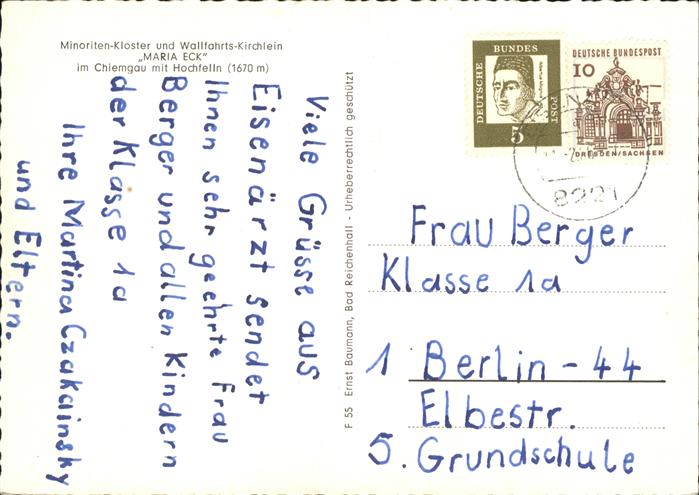 Minoriten-Kloster und Wallfahrts-Kirchlein
„MARIA ECK"
im Chiemgau mit Hochfelln (1670 m)
Viele Grüsse aus
Eisenärzt sendet
Ihnen sehr geehrte Frau
Berger und allen Kindern
der Klasse 1a
Ihre Martina Czakainsky
und Eltern.
F 55 Ernst Baumann, Bad Reichenhall - Urheberrechtlich geschützt
DEUTSCHE BUNDESPOST
5
DEUTSCHE BUNDESPOST
10
DRESDEN/SACHSEN
8221
Frau Berger
Klasse 1a
1 Berlin - 44
Elbestr.
5. Grundschule